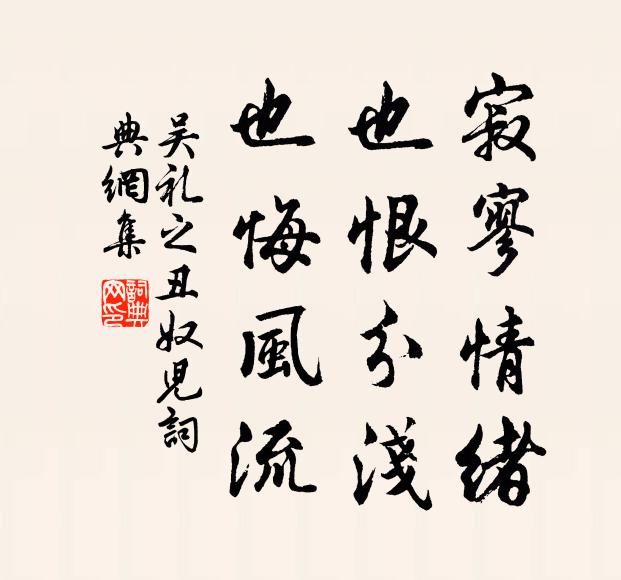 寂寥情緒
也恨分淺
也悔風流
吴礼之丑奴児詞
典網集
詞典网印